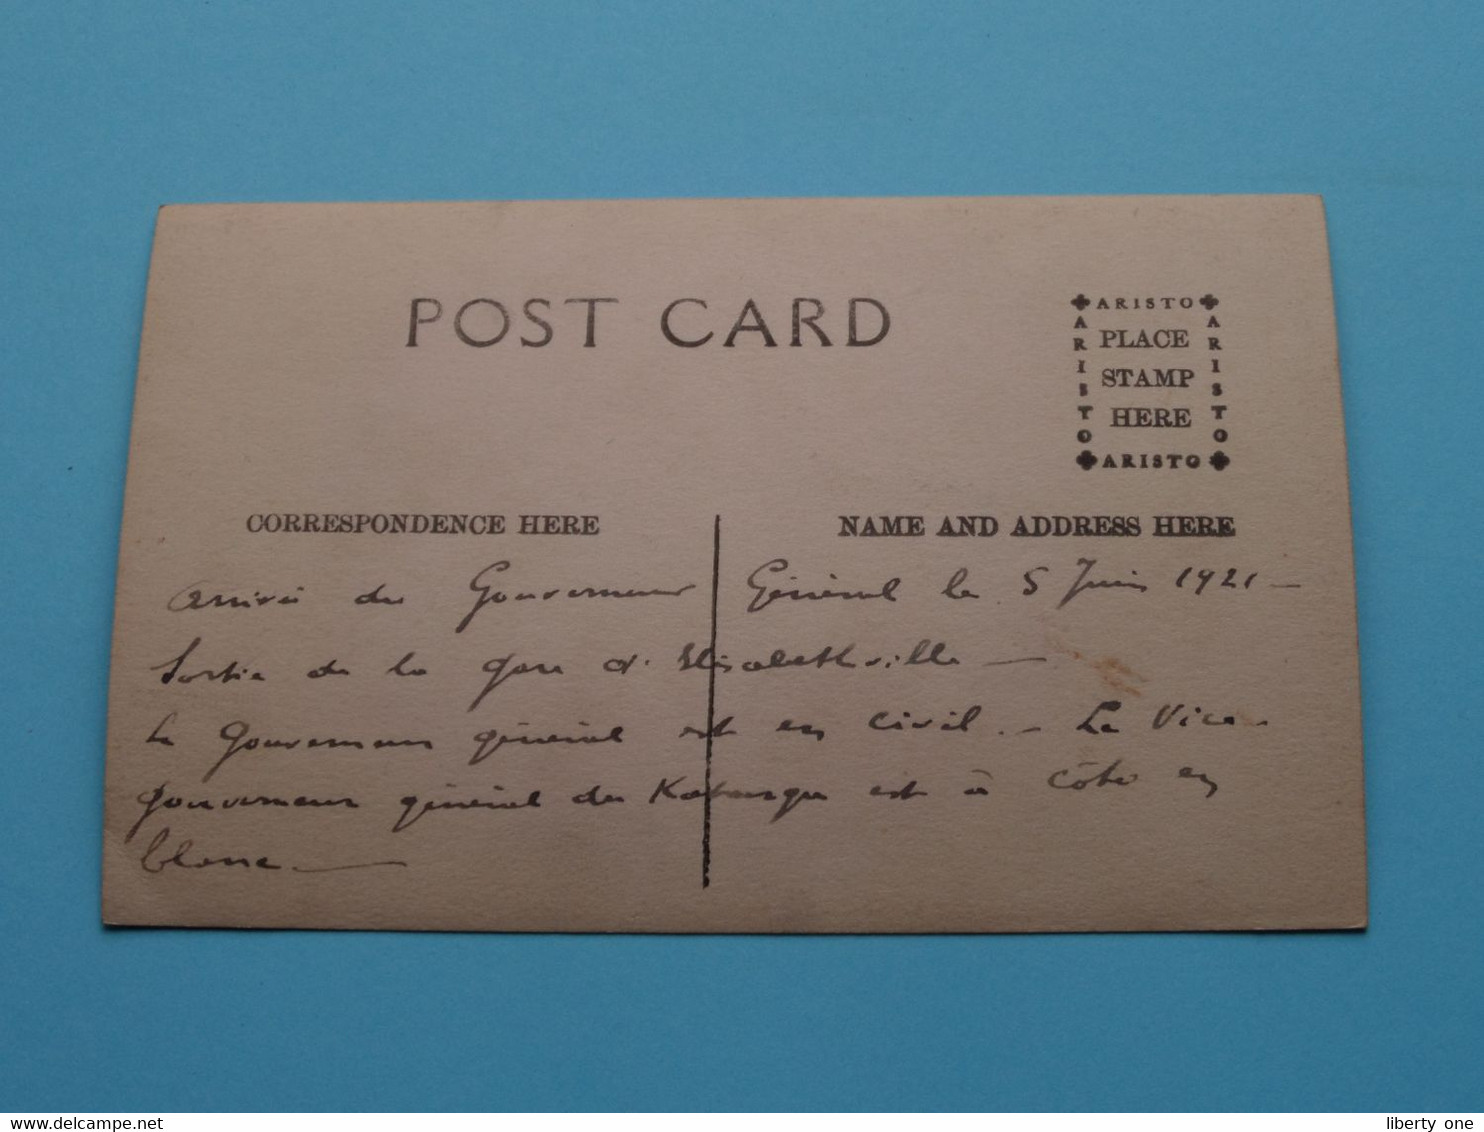 POST CARD
ARISTO
ARISTO
ARISTO
PLACE
STAMP
HERE
ARISTO
CORRESPONDENCE HERE
NAME AND ADDRESS HERE
Arrivée du Gouverneur Général le 5 Juin 1921 —
Sortie de la gare d'Elisabethville —
Le Gouverneur général est en civil. — Le Vice-
gouverneur général du Katanga est à côté en
blanc. —
delcampe.net
liberty one